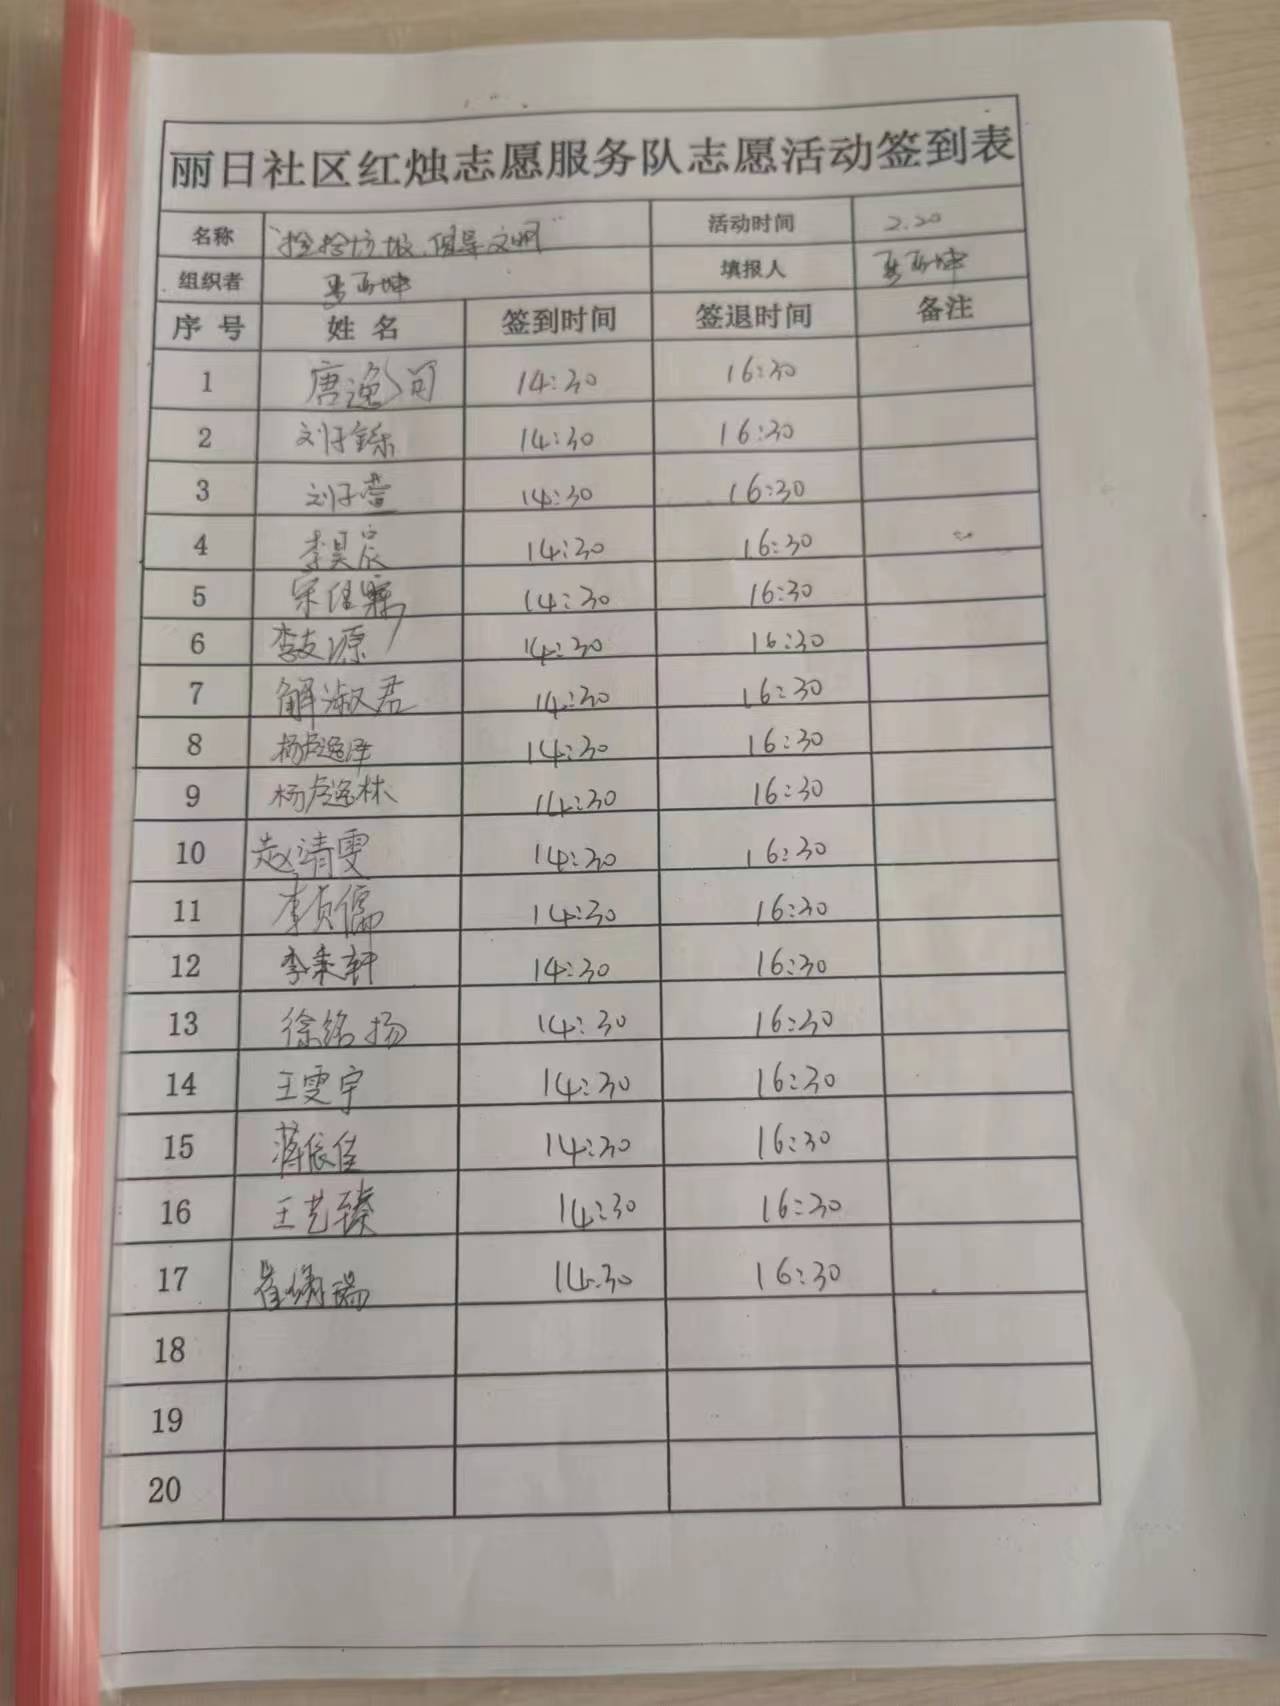 丽日社区红烛志愿服务队志愿活动签到表
名称 "捡捡垃圾,倡导文明" 活动时间 2.20
组织者 填报人
序号 姓名 签到时间 签退时间 备注
1 唐逸可 14:30 16:30
2 刘子铄 14:30 16:30
3 刘子萱 14:30 16:30
4 李昊宸 14:30 16:30
5 宋佳霖 14:30 16:30
6 李友源 14:30 16:30
7 解淑君 14:30 16:30
8 杨卢逸泽 14:30 16:30
9 杨卢逸林 14:30 16:30
10 赵清雯 14:30 16:30
11 李贞儒 14:30 16:30
12 李秉轩 14:30 16:30
13 徐铭扬 14:30 16:30
14 王雯宇 14:30 16:30
15 蒋依佳 14:30 16:30
16 王艺臻 14:30 16:30
17 14:30 16:30
18
19
20